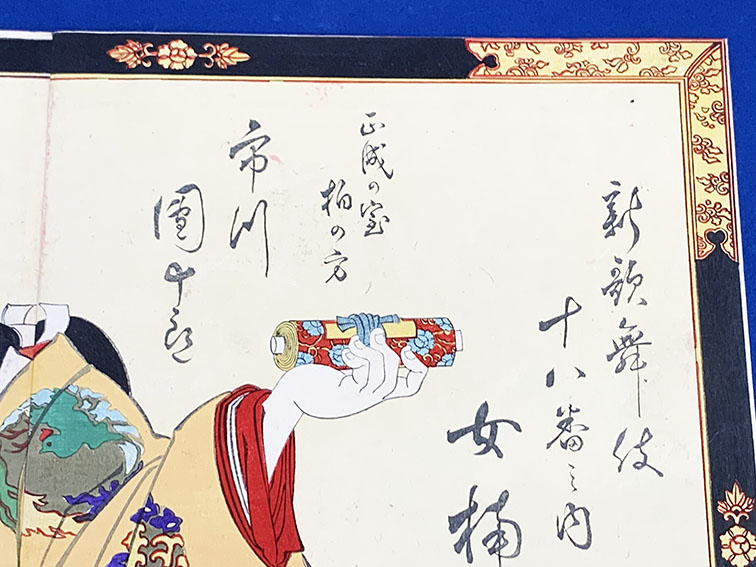 新歌舞伎
十八番之内
女楠
正成の室
柏の方
市川
團十郎